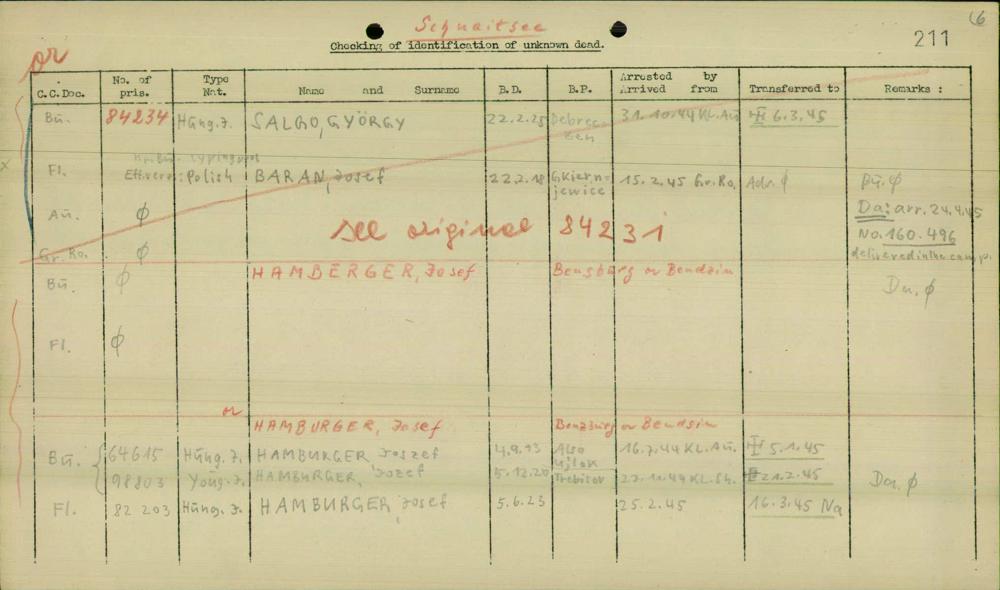 6
Schnaitsee
211
Checking of identification of unknown dead.
or
C.C.Doc. No. of pris. Type Nat. Name and Surname B.D. B.P. Arrested by Arrived from Transferred to Remarks :
Bu. 84234 Hung.J. SALGO, GYÖRGY 22.2.25 Debreczen 31.10.44 KL.Au III 6.3.45
Fl. : Polish BARAN, Josef 22.2.18 15.2.45 Gr.Ro. Adr. ø Bu. ø
Au. ø Da: arr. 24.4.45
see original 84231 No. 160.496
Gr.Ro. ø delivered in the camp.
Bu. ø HAMBERGER, Josef Bensburg or Bendzin Da. ø
Fl. ø
or HAMBURGER, Josef Benzburg or Bendzin
Bu. 64615 Hung.J. HAMBURGER Joszef 4.9.13 16.7.44 KL.Au. III 5.1.45
98803 Yong.J. HAMBURGER, Jozef 5.12.20 Trebisov 21.2.45 Da. ø
Fl. 82 203 Hung.J. HAMBURGER, Josef 5.6.23 25.2.45 16.3.45 Na